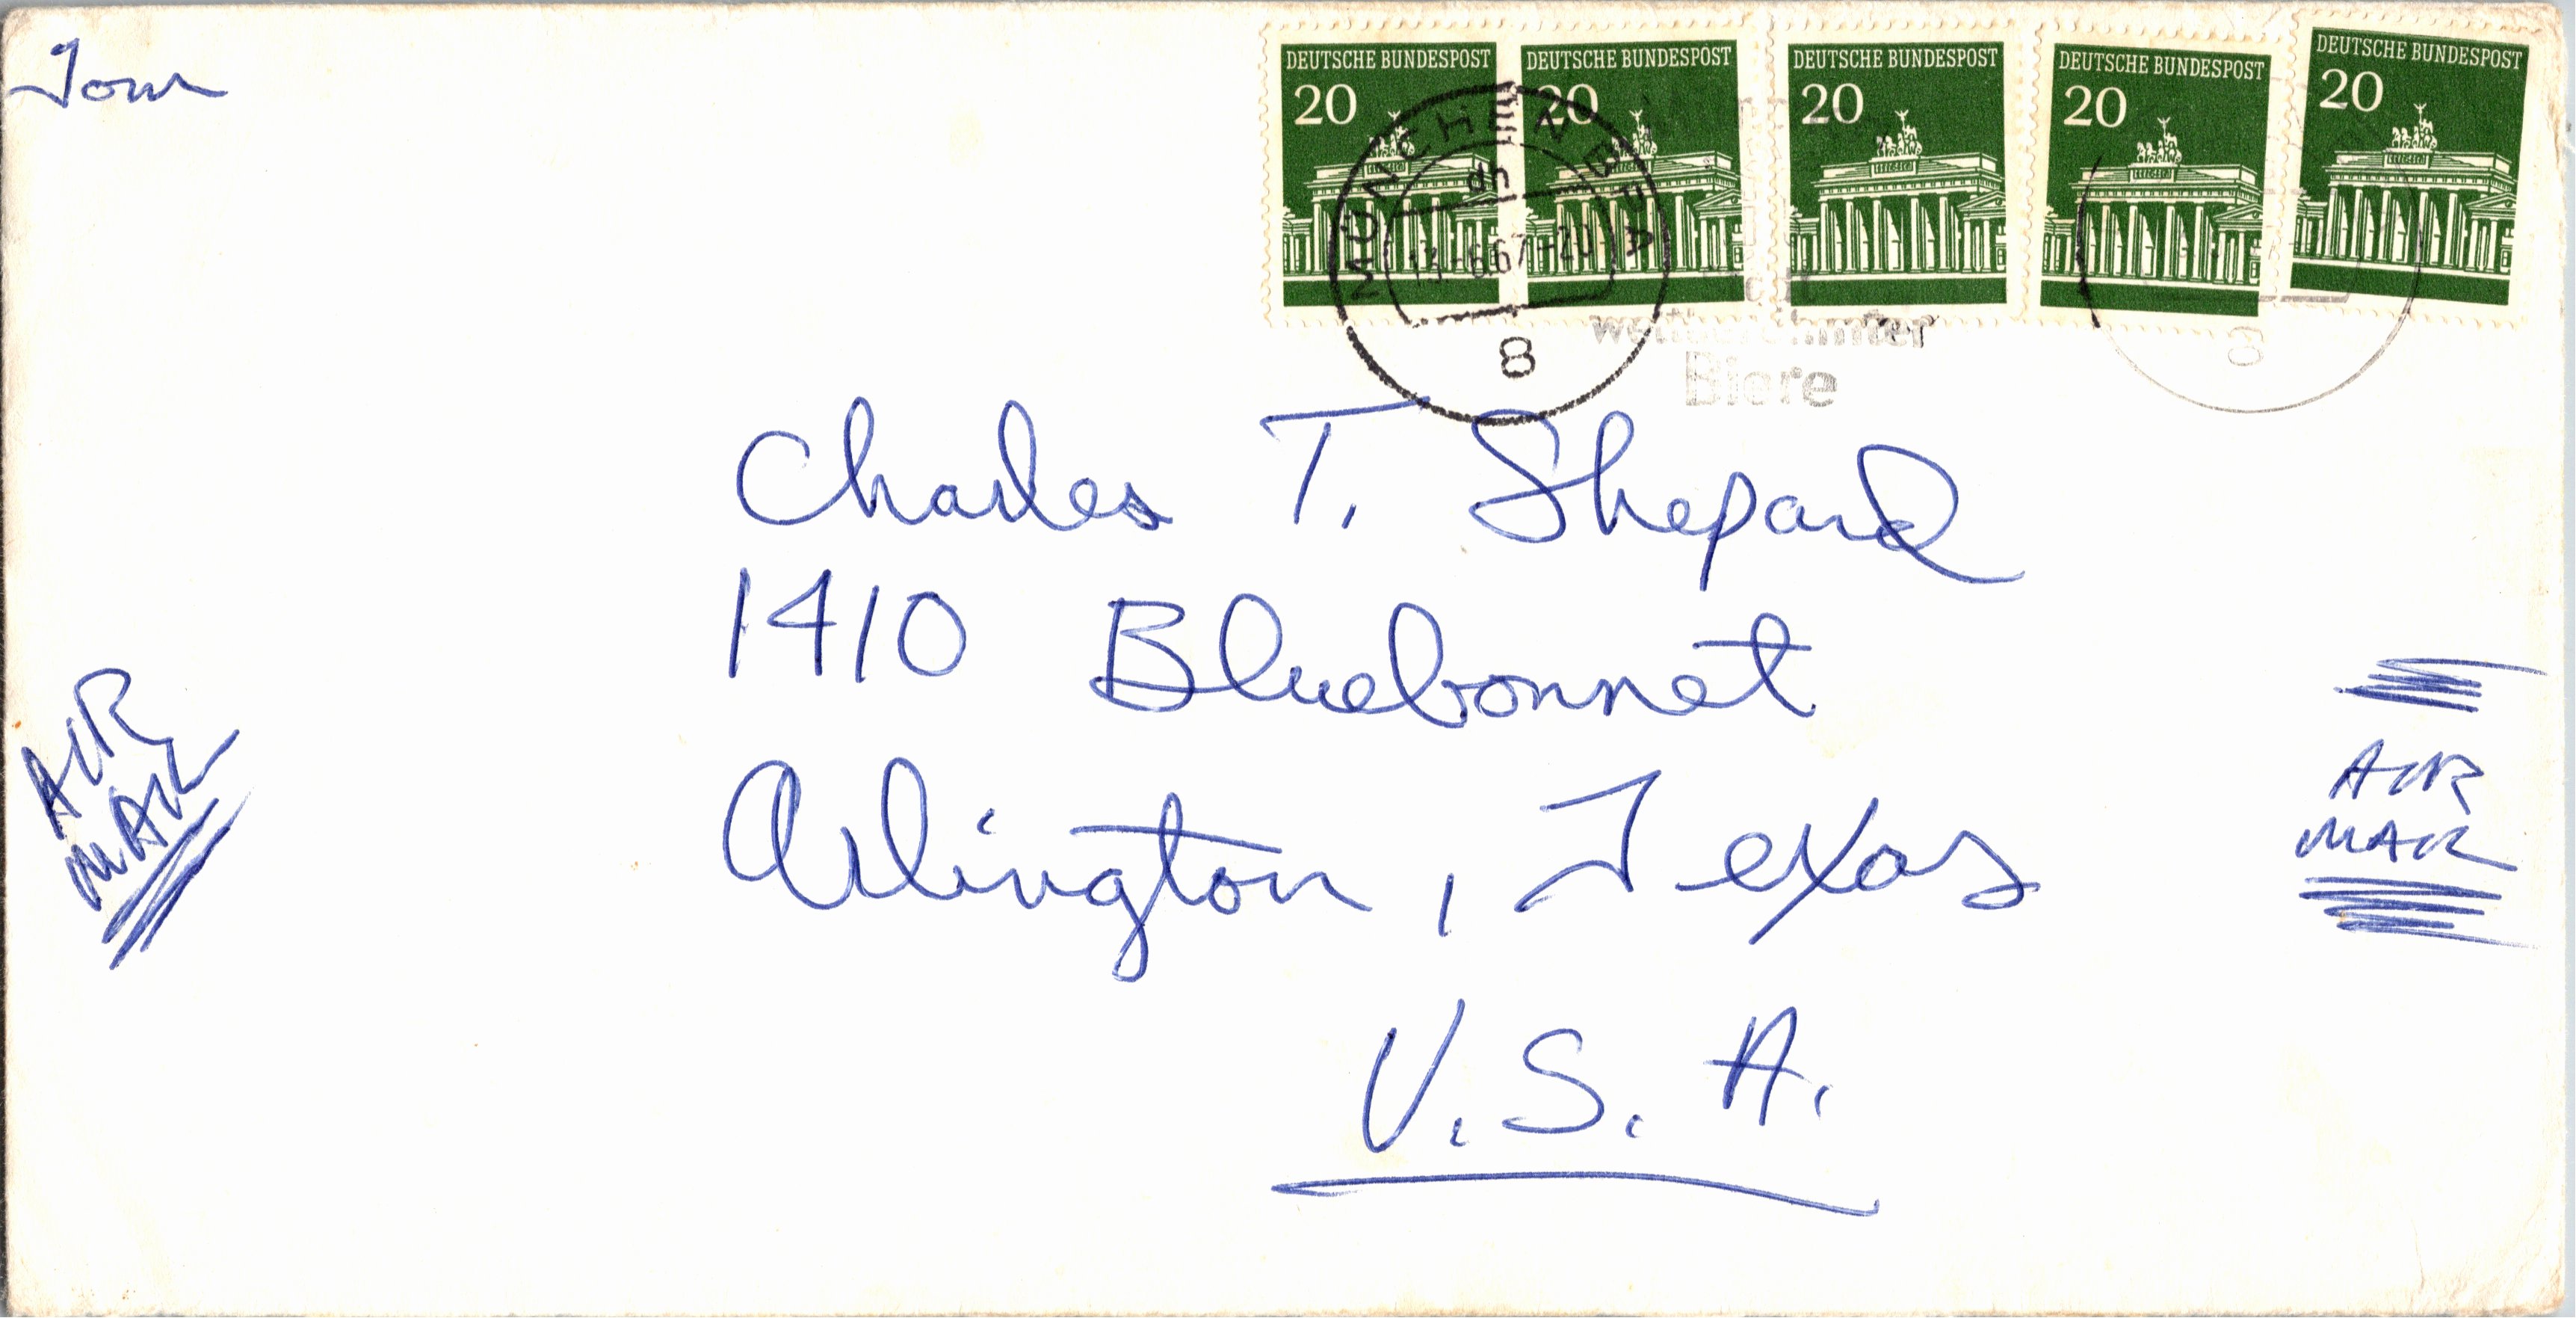 Tom
DEUTSCHE BUNDESPOST
20
DEUTSCHE BUNDESPOST
20
DEUTSCHE BUNDESPOST
20
DEUTSCHE BUNDESPOST
20
DEUTSCHE BUNDESPOST
20
MÜNCHEN BPA
dh
13.-6.67-20
8
weltberühmter
Biere
8
Charles T. Shepard
1410 Bluebonnet
Arlington, Texas
U.S.A.
AIR
MAIL
AIR
MAIL